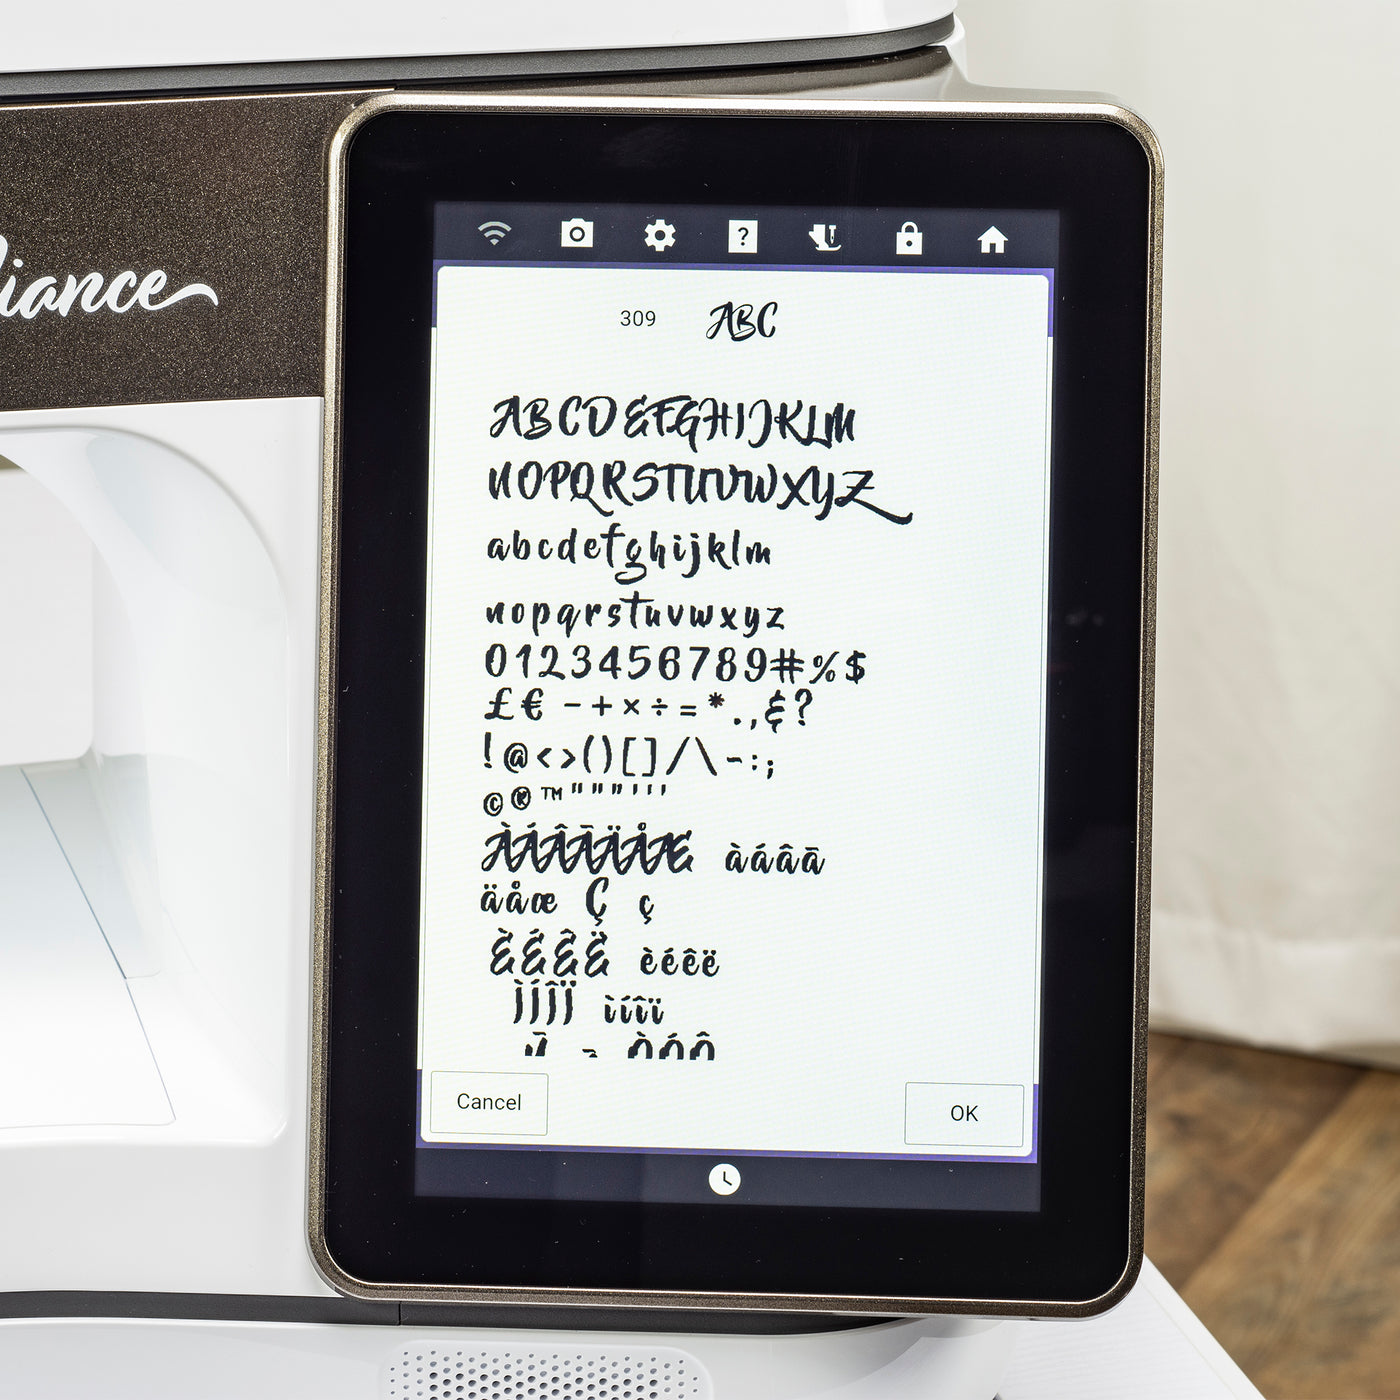 309 ABC
ABCDEFGHIJKLM
NOPQRSTUVWXYZ
abcdefghijklm
nopqrstuvwxyz
0123456789#%$
£€-+×÷=*.,&?
!@<>()[]/\~:;
©®™"""'''
ÀÁÂĀÄÅÆ àáâā
äåæ Ç ç
ÈÉÊË èéêë
ÌÍÎÏ ìíîï
Cancel
OK